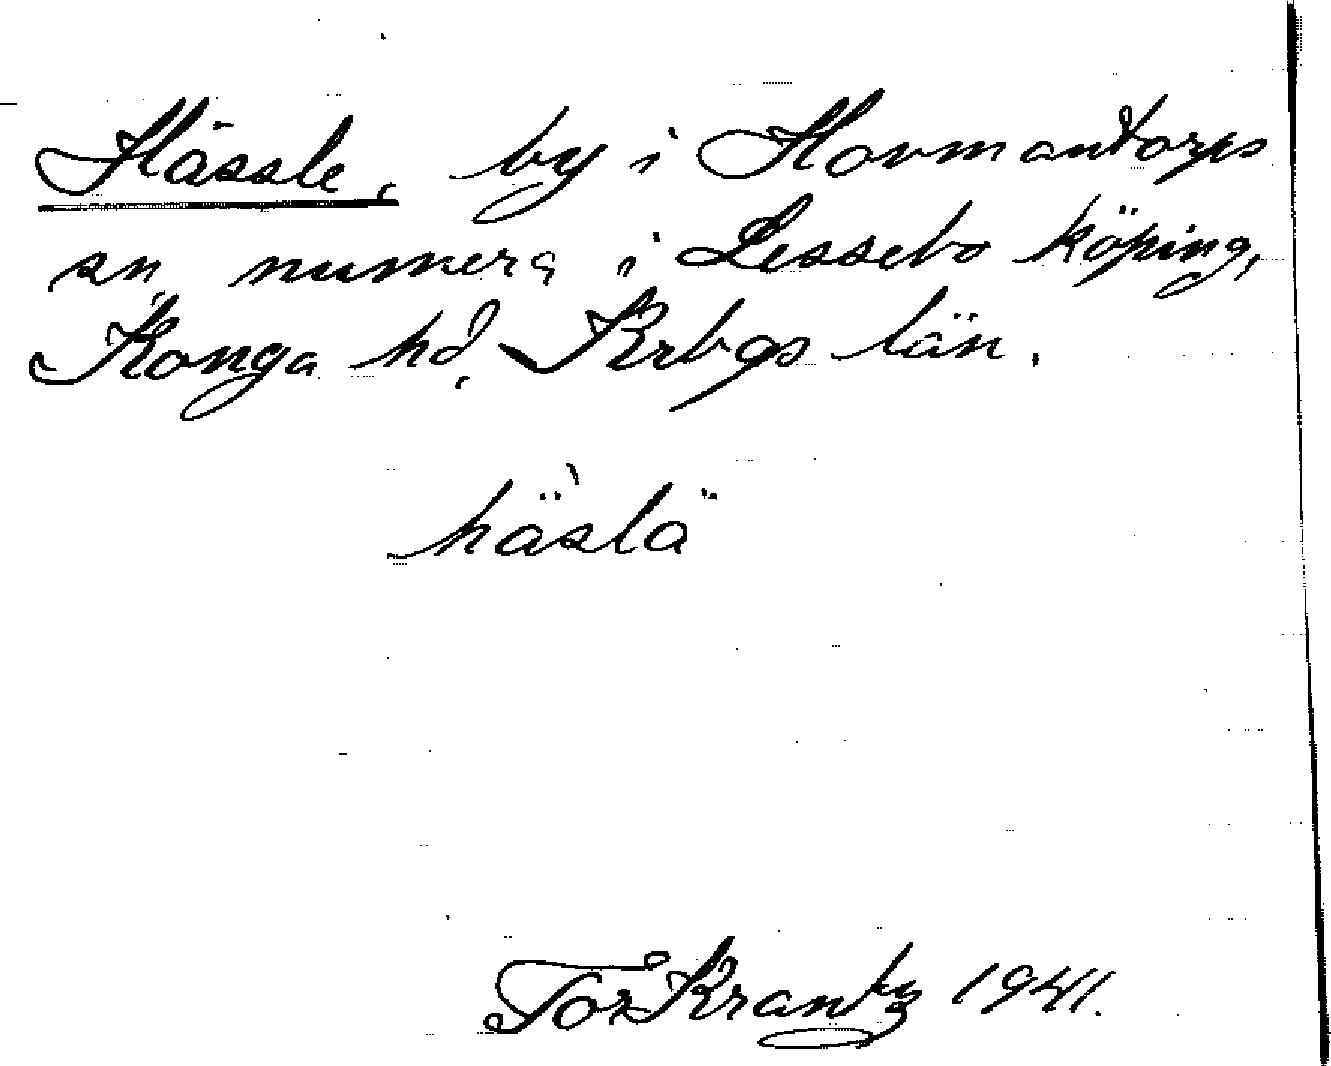 Hässle, by i Hovmantorps
sn, numera i Lessebo köping,
Konga hd, Krbgs län.
hä̀slä
Tor Krantz 1941.